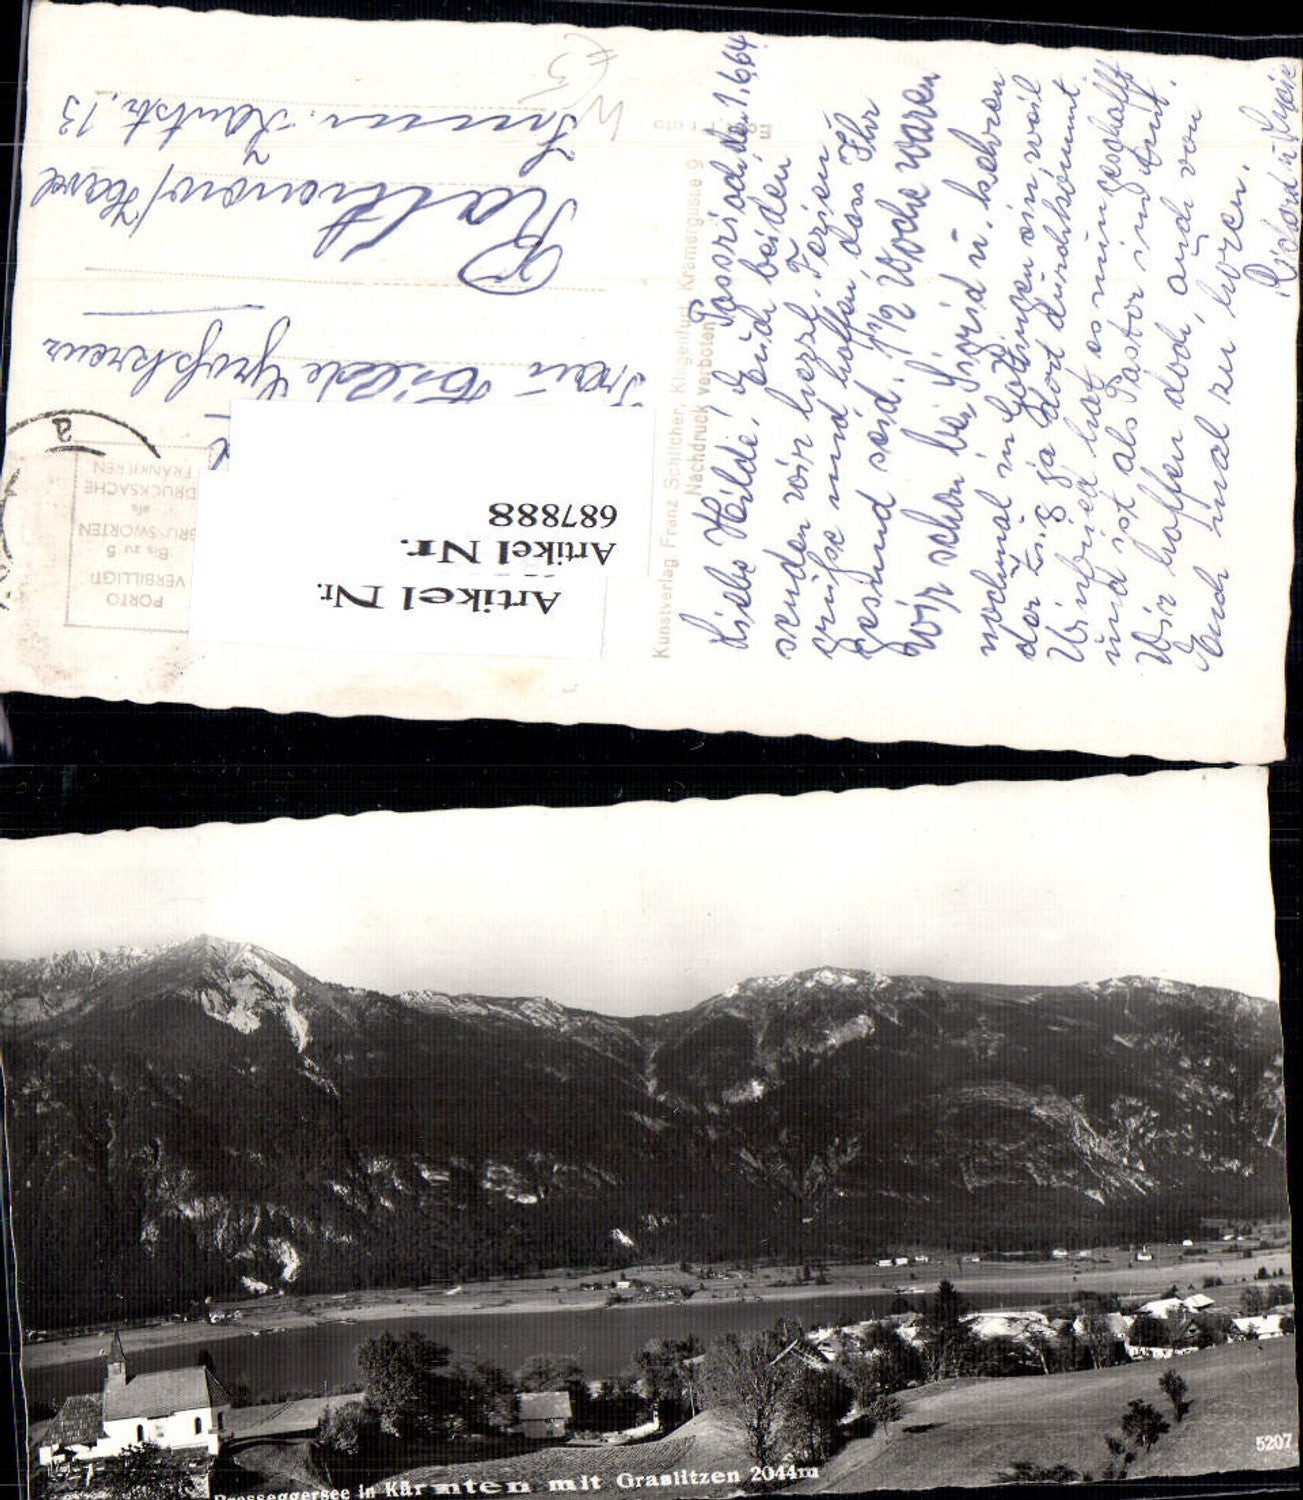 Liebe Hilde! Passriach, den 1.6.64.
senden wir Euch beiden
grüße und hoffen, dass Ihr
gesund seid. 1 1/2 Woche waren
wir schon bei Sigrid u. kehren
nochmal in Göttingen ein, weil
der Zug ja dort durchkommt
Winfried hat es nun geschafft
und ist als Pastor
Wir hoffen doch, auch von
Euch mal zu hören.
Richard u.
Kunstverlag Franz Schilcher, Klagenfurt, Kramergasse 9
Nachdruck verboten
PORTO
VERBILLIGT!
Bis zu 5
GRUSSWORTEN
als
DRUCKSACHE
FRANKIEREN
a
Frau Hilde Großkreuz
Rathenow/Havel
Kantstr. 13
Artikel Nr.
687888
Artikel Nr.
Presseggersee in Kärnten mit Graslitzen 2044m
5207